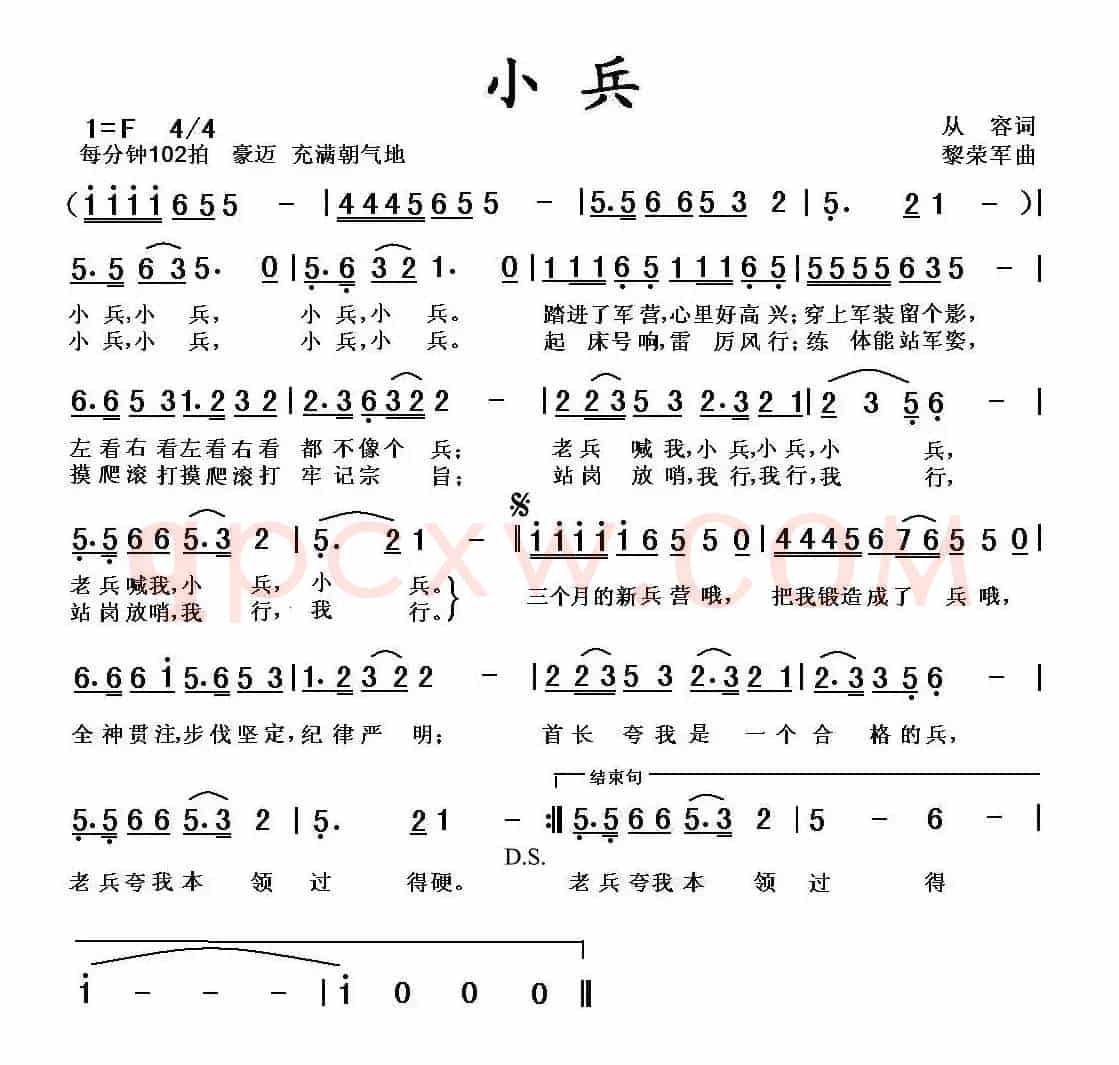 小 兵
1=F 4/4
从 容词
每分钟102拍 豪迈 充满朝气地
黎荣军曲
(i i i i 6 5 5 - | 4 4 4 5 6 5 5 - | 5. 5 6 6 5 3 2 | 5. 2 1 - )|
5. 5 6 3 5. 0 | 5. 6 3 2 1. 0 | 1 1 1 6 5 1 1 1 6 5 | 5 5 5 5 6 3 5 - |
小 兵,小 兵, 小 兵,小 兵。 踏进了军营,心里好高兴;穿上军装留个影,
小 兵,小 兵, 小 兵,小 兵。 起 床号响,雷 厉风行;练 体能站军姿,
6. 6 5 3 1. 2 3 2 | 2. 3 6 3 2 2 - | 2 2 3 5 3 2. 3 2 1 | 2 3 5 6 - |
左看右看左看右看 都不像个 兵; 老兵 喊我,小兵,小兵,小 兵,
摸爬滚打摸爬滚打 牢记宗 旨; 站岗 放哨,我行,我行,我 行,
5. 5 6 6 5. 3 2 | 5. 2 1 - || i i i i i 6 5 5 0 | 4 4 4 5 6 7 6 5 5 0 |
老兵喊我,小 兵,小 兵。 三个月的新兵营哦, 把我锻造成了 兵哦,
站岗放哨,我 行,我 行。
6. 6 6 i 5. 6 5 3 | 1. 2 3 2 2 - | 2 2 3 5 3 2. 3 2 1 | 2. 3 3 5 6 - |
全神贯注,步伐坚定,纪律严 明; 首长 夸我是 一个合 格的兵,
结束句
5. 5 6 6 5. 3 2 | 5. 2 1 - :|| 5. 5 6 6 5. 3 2 | 5 - 6 - |
D.S.
老兵夸我本 领 过 得硬。 老兵夸我本 领 过 得
i - - - | i 0 0 0 ||
qpcxw.COM